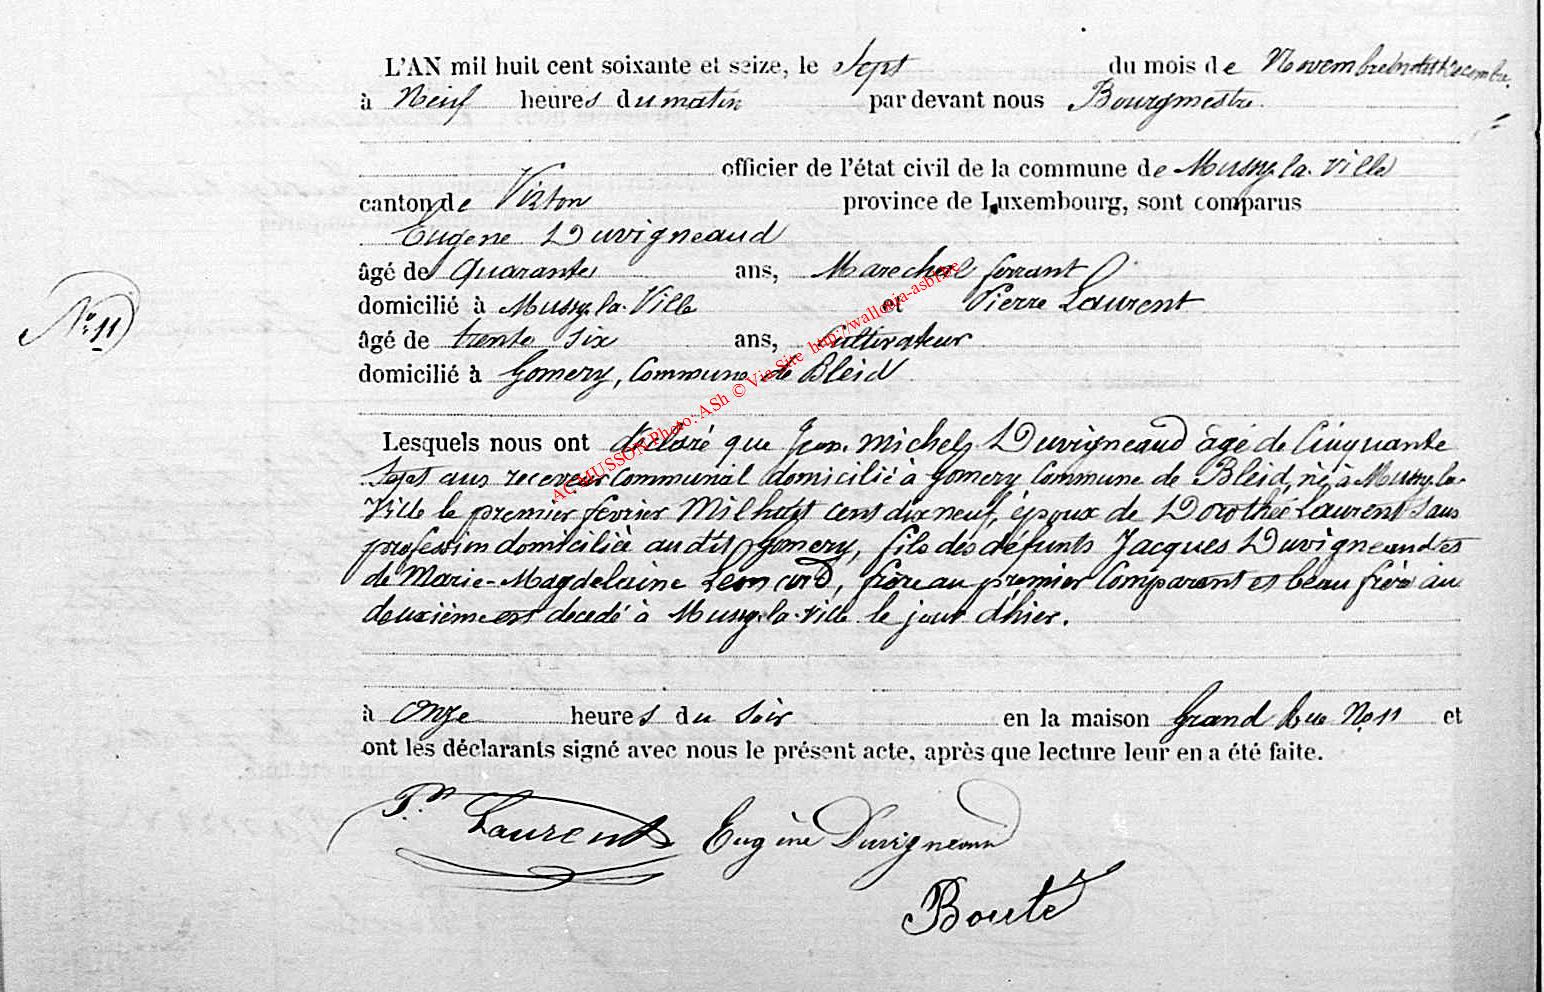 L'AN mil huit cent soixante et seize, le Sept du mois de Novembre
à Neuf heures du matin par devant nous Bourgmestre
officier de l'état civil de la commune de Mussy-la-Ville
canton de Virton province de Luxembourg, sont comparus
Eugene Duvigneaud
âgé de Quarante ans, Marechal ferrant
domicilié à Mussy-la-Ville et Pierre Laurent
N° 11
âgé de trente six ans, Cultivateur
domicilié à Gomery, Commune de Bleid
AC MUSSON Photo: ASh © Via Site http://wallonia-asbl.be
Lesquels nous ont déclaré que Jean Michel Duvigneaud âgé de Cinquante
Sept ans receveur communal domicilié à Gomery Commune de Bleid, né à Mussy-la-
Ville le premier fevrier Mil huit cent dix neuf, époux de Dorothée Laurent Sans
profession domiciliée au dit Gomery, fils des défunts Jacques Duvigneaud et
de Marie-Magdelaine Leonard, frère au premier Comparant et beau frère au
deuxième est decedé à Mussy-la-Ville le jour d'hier.
à Onze heures du Soir en la maison Grand Rue No 11 et
ont les déclarants signé avec nous le présent acte, après que lecture leur en a été faite.
P.re Laurent Eugène Duvigneaud
Bouté